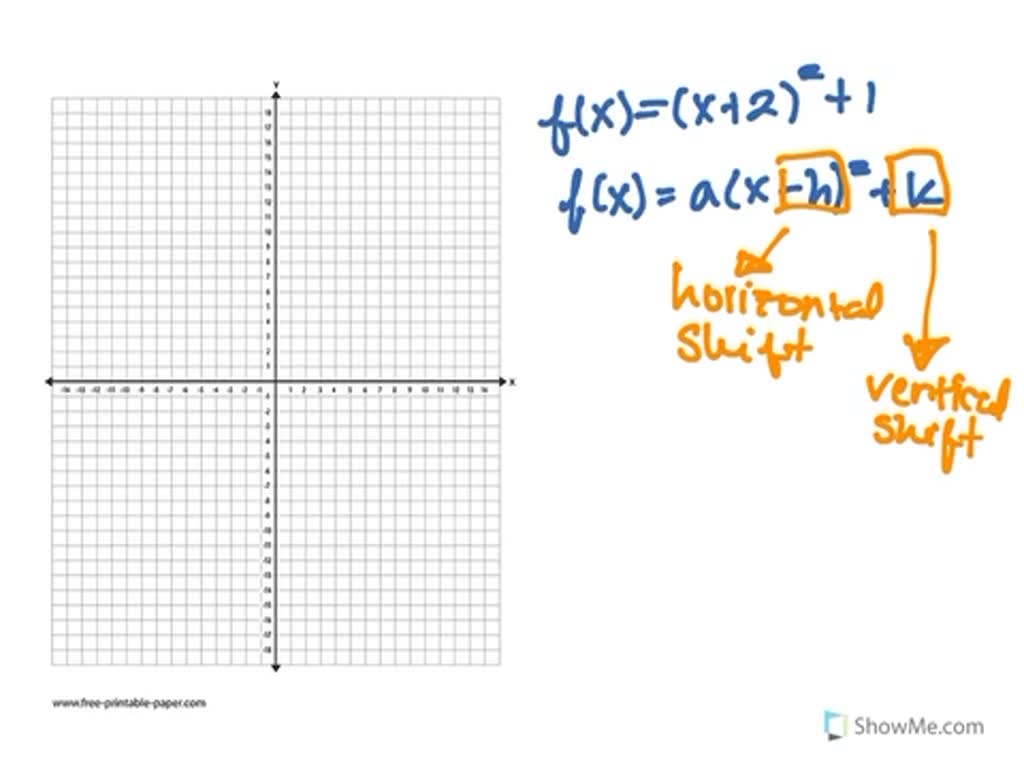 f(x)=(x+2)²+1
f(x)=a(x-h)²+k
horizontal
shift
vertical
shift
Y
18
17
16
15
14
13
12
11
10
9
8
7
6
5
4
3
2
1
-14 -13 -12 -11 -10 -9 -8 -7 -6 -5 -4 -3 -2 -1 1 2 3 4 5 6 7 8 9 10 11 12 13 14 X
-1
-2
-3
-4
-5
-6
-7
-8
-9
-10
-11
-12
-13
-14
-15
-16
-17
-18
www.free-printable-paper.com
ShowMe.com